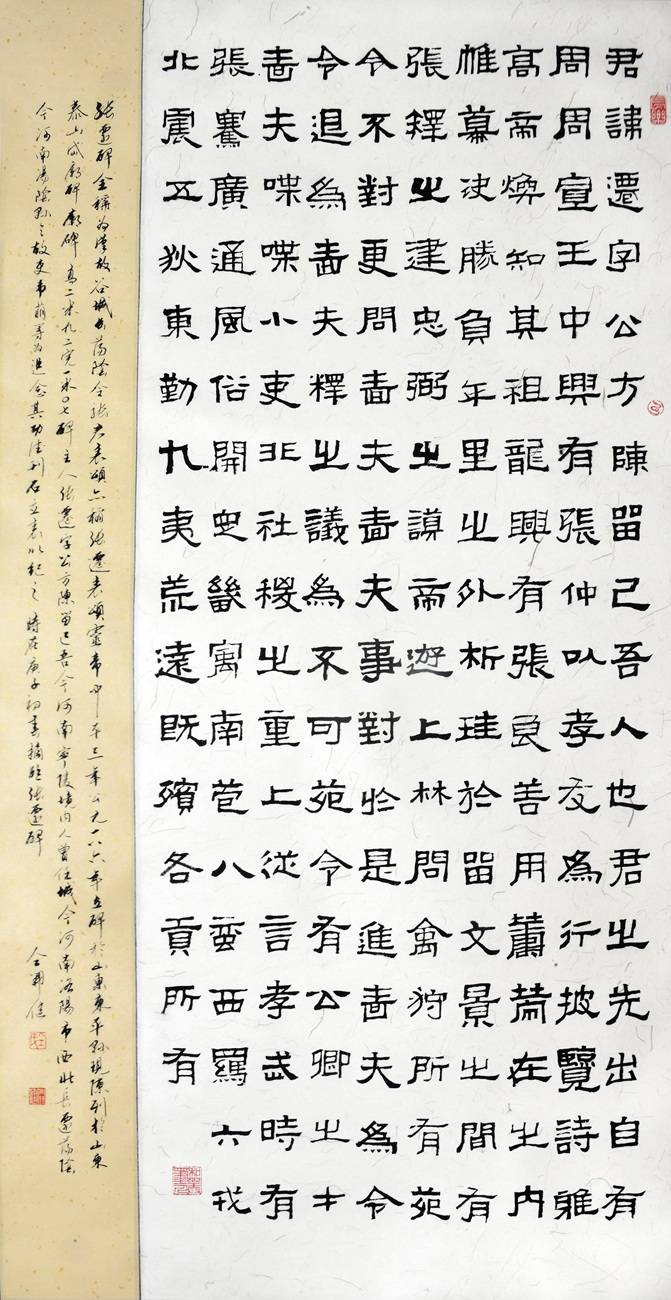 君諱遷字公方陳留己吾人也君之先出自有
周周宣王中興有張仲以孝友為行披覽詩雅
高帝煥知其祖龍興有張良善用籌策在之內
帷幕決勝負千里之外析珪於留文景之間有
張釋之建忠弼之謨帝遊上林問禽狩所有苑
令不對更問嗇夫嗇夫事對於是進嗇夫為令
令退為嗇夫釋之議為不可苑令有公卿之才
嗇夫喋喋小吏非社稷之重上從言孝武時有
張騫廣通風俗開定畿寓南苞八蠻西羈六戎
北震五狄東勤九夷荒遠既殯各貢所有
張遷碑全稱為漢故谷城長蕩陰令張君表頌亦稱張遷表頌靈帝中平三年公元一八六年立碑於山東東平縣現陳列於山東
泰山岱廟碑廊碑高二米九二寬一米〇七碑主人張遷字公方陳留己吾今河南寧陵境內人曾任城今河南洛陽市西北長遷蕩陰
今河南湯陰縣之故吏韋萌等為追念其功德刊石立表以紀之時在庚子初春摘臨張遷碑